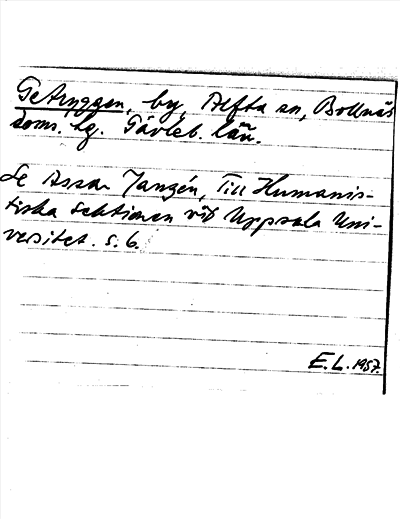 Getryggen, by, Alfta sn, Bollnäs
doms. tg. Gävleb. län.
Se Assar Janzén, Till Humanis-
tiska Sektionen vid Uppsala Uni-
versitet. s. 6.
E.L. 1957.